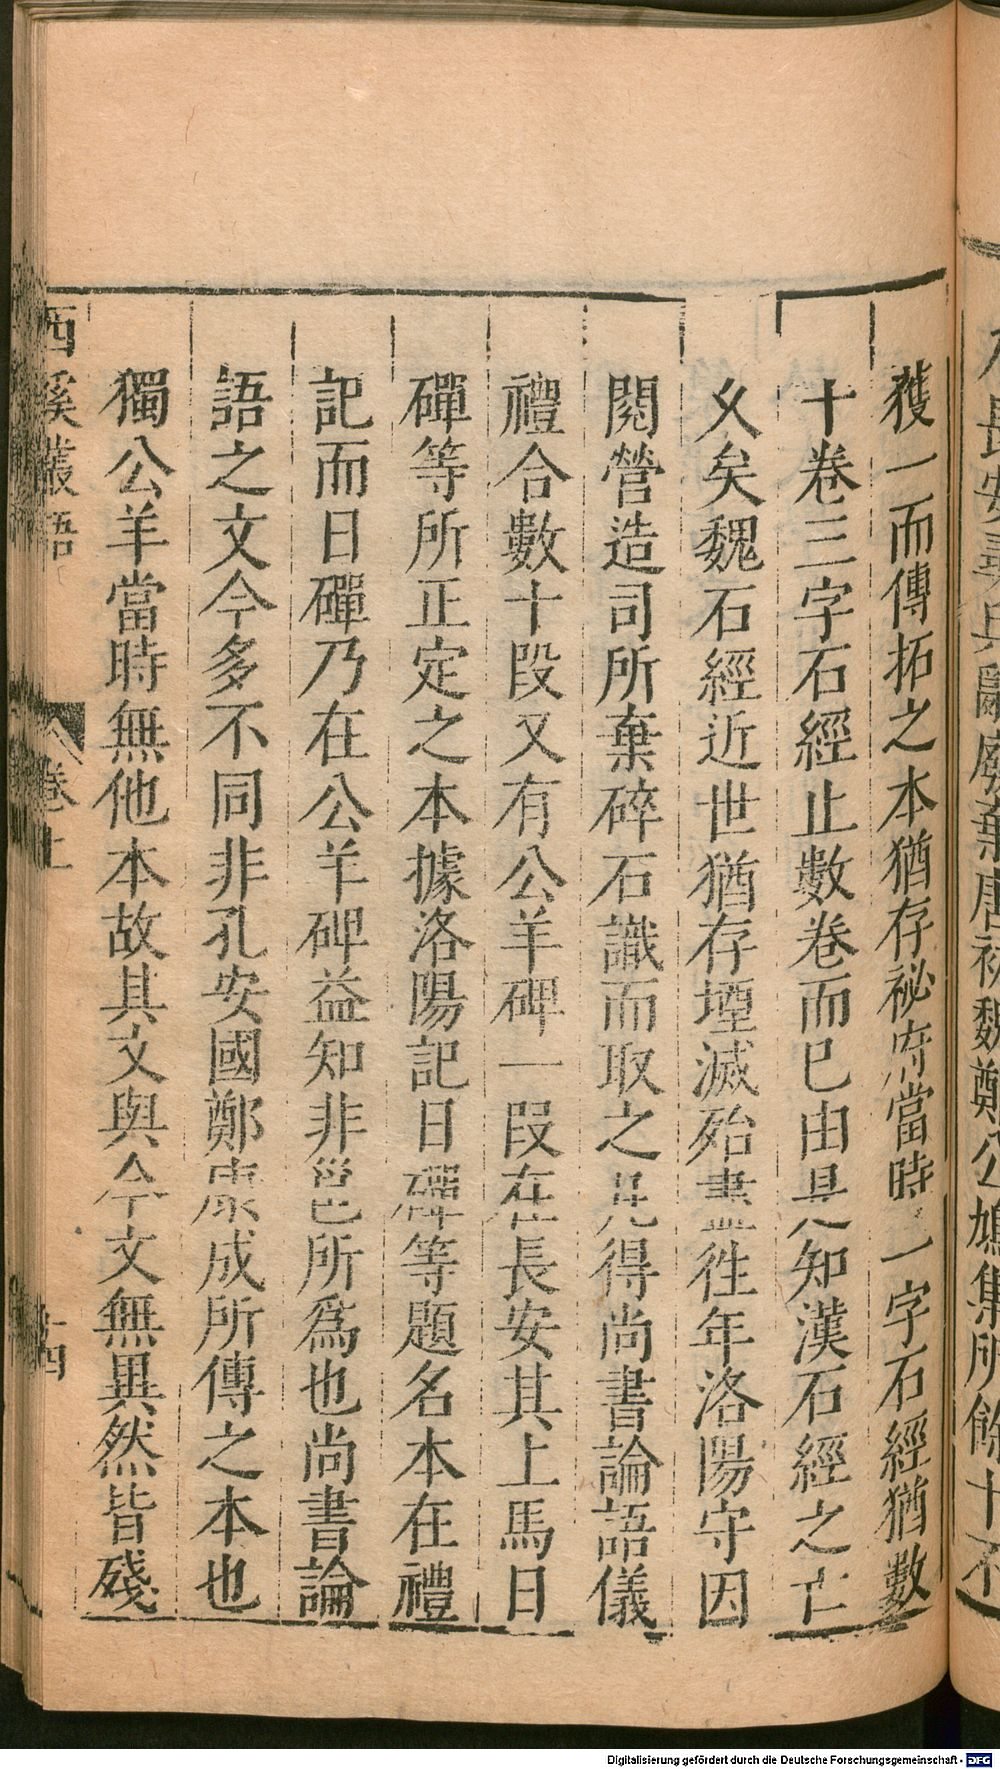 獲一而傳拓之本猶存祕府當時一字石經猶數
十卷三字石經止數卷而已由是知漢石經之亡
乆矣魏石經近世猶存堙滅殆盡徃年洛陽守因
閱營造司所棄碎石識而取之凡得尚書論語儀
禮合數十段又有公羊碑一段在長安其上馬日
磾等所正定之本據洛陽記日磾等題名本在禮
記而日磾乃在公羊碑益知非邕所爲也尚書論
語之文今多不同非孔安國鄭康成所傳之本也
獨公羊當時無他本故其文與今文無異然皆殘
西溪叢語
卷上
十四
Digitalisierung gefördert durch die Deutsche Forschungsgemeinschaft - DFG